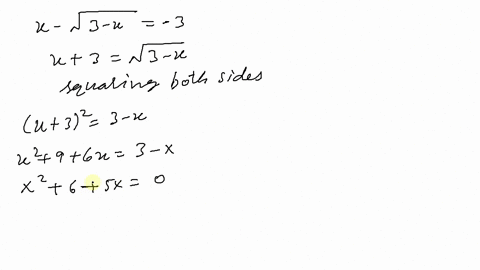 x - √(3-x) = -3
x + 3 = √(3-x)
squaring both sides
(x+3)² = 3-x
x² + 9 + 6x = 3 - x
x² + 6 + 5x = 0